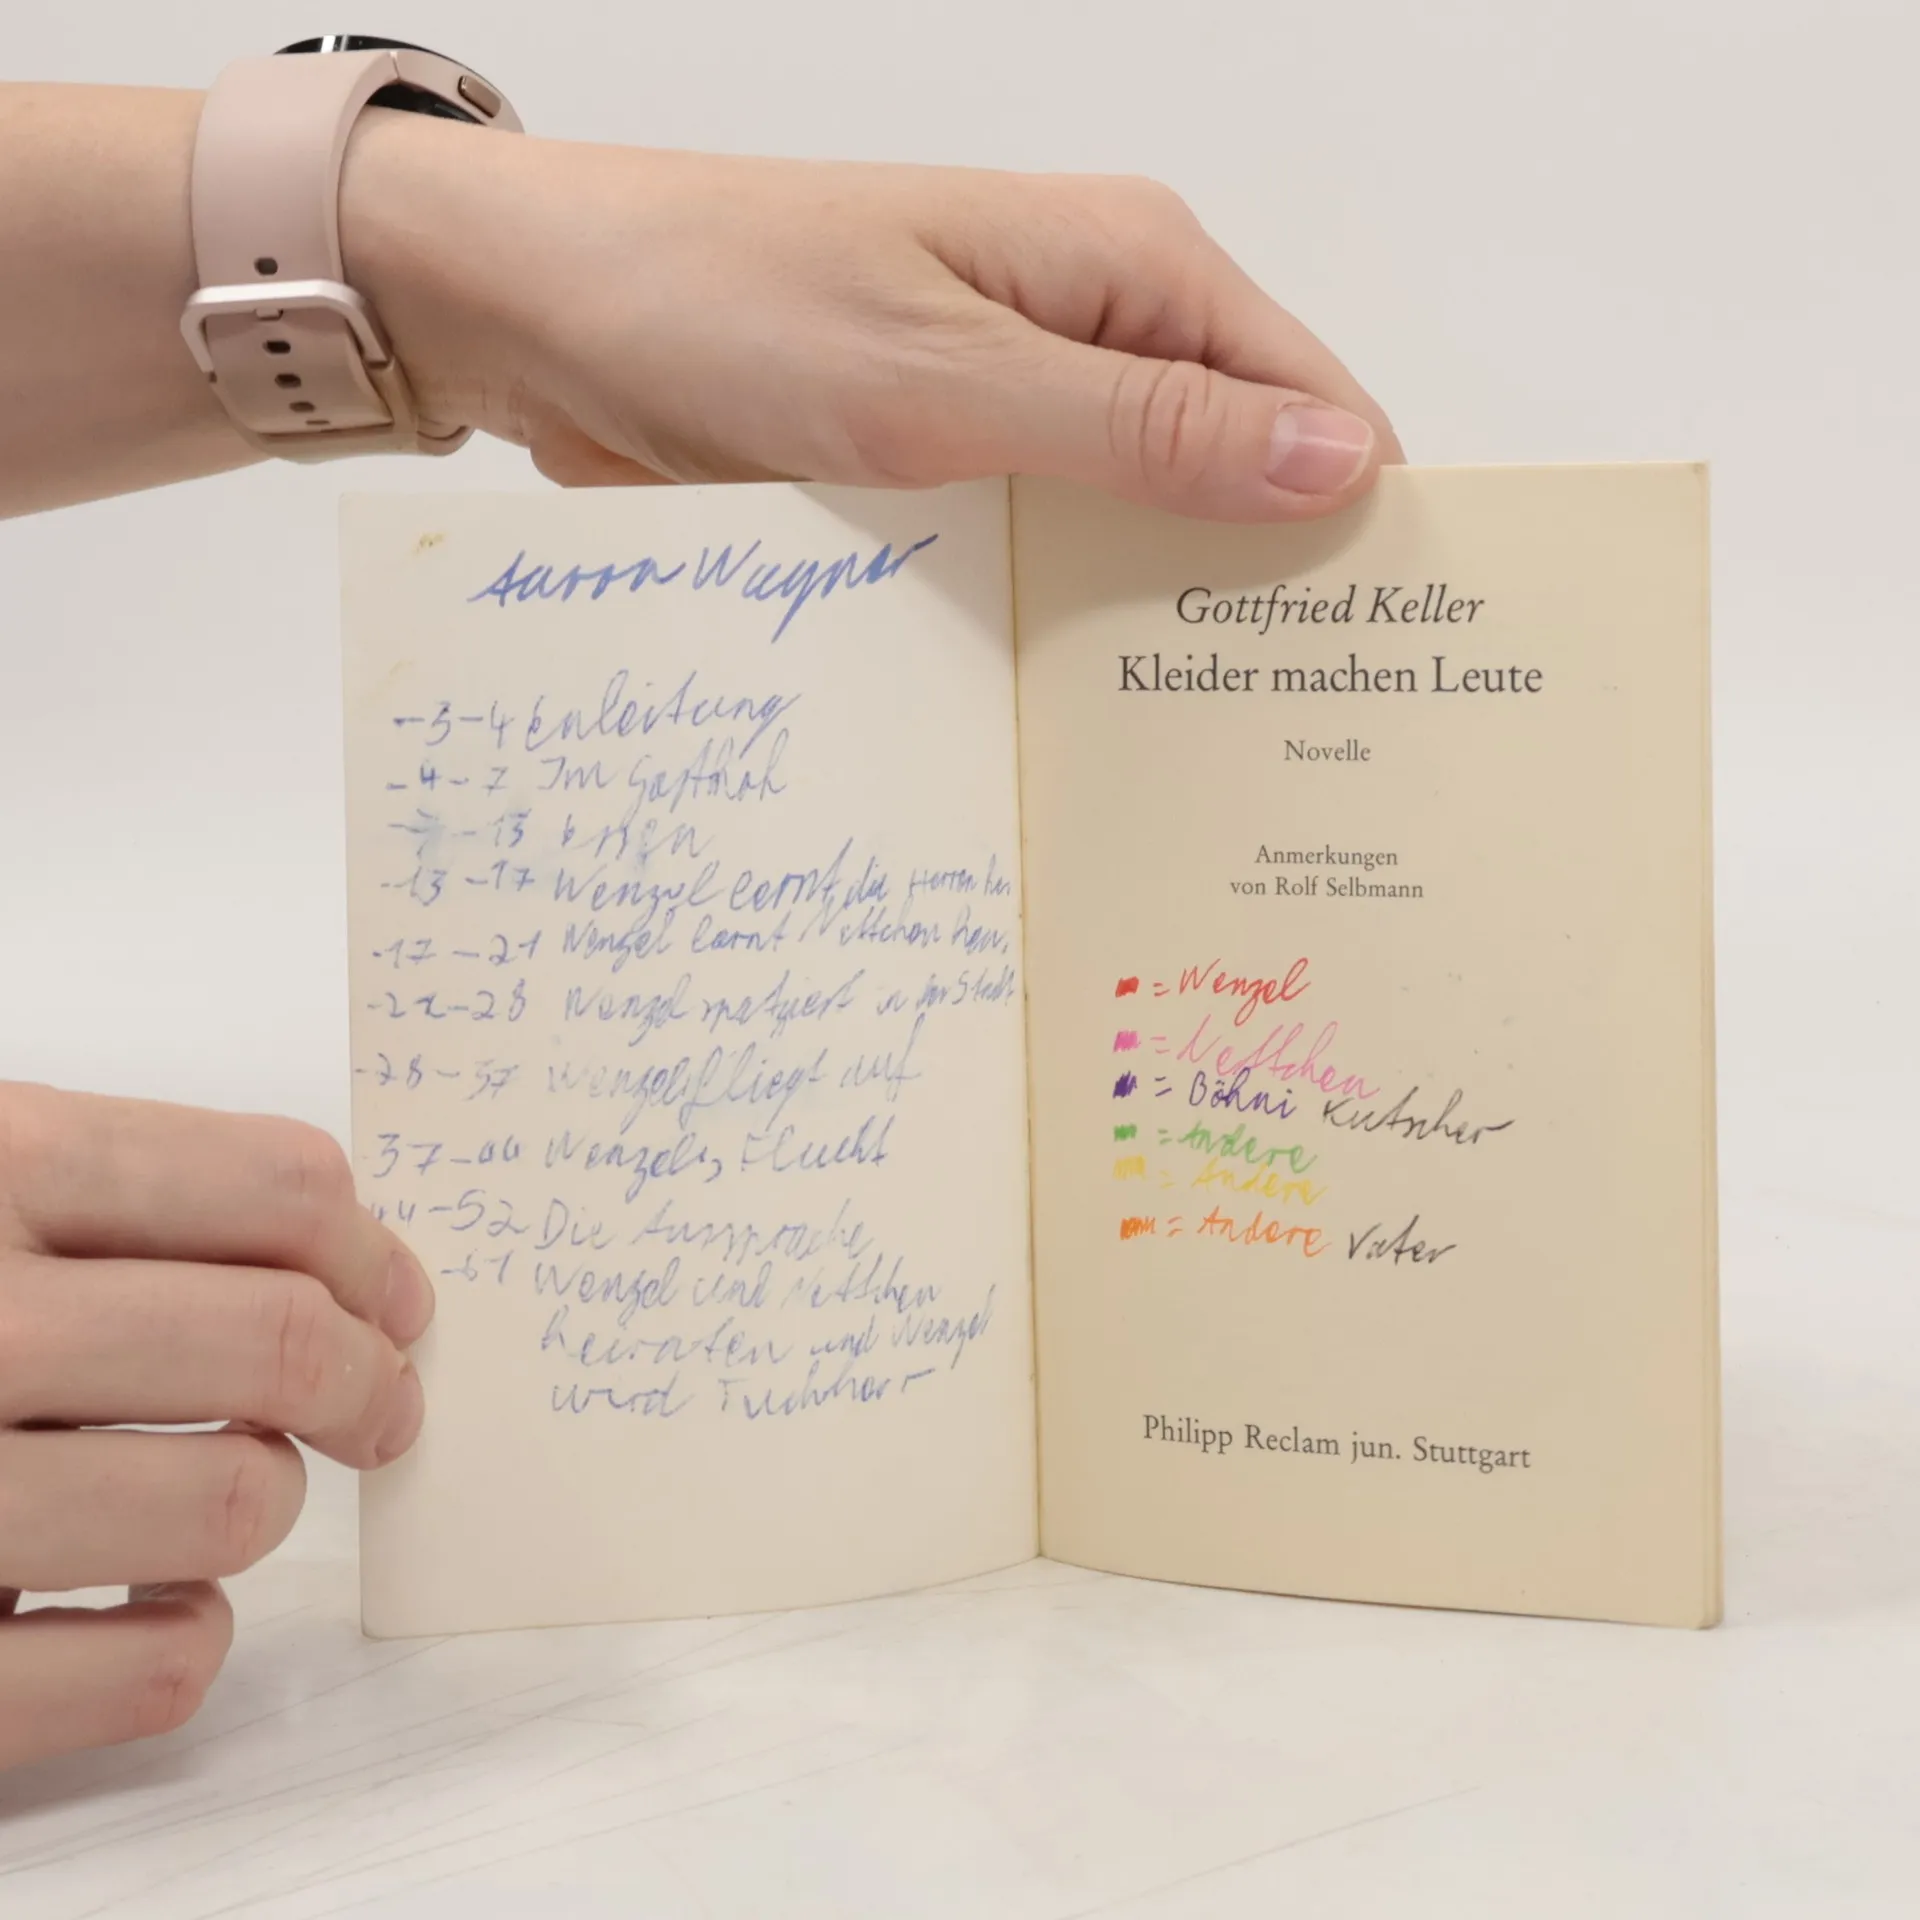 Aaron Wagner
-3-4 Einleitung
-4-7 Im Gasthoh
-7-13 Essen
-13-17 Wenzel lernt die Herren ken
-17-21 Wenzel lernt Nettchen ken.
-21-28 Wenzel spatziert in der Stadt
-28-37 Wenzel fliegt auf
37-44 Wenzels Flucht
44-52 Die Aussprache
-61 Wenzel und Nettchen
heiraten und Wenzel
wird Tuchherr
Gottfried Keller
Kleider machen Leute
Novelle
Anmerkungen
von Rolf Selbmann
= Wenzel
= Nettchen
= Böhni Kutscher
= Andere
= Andere
= Andere Vater
Philipp Reclam jun. Stuttgart